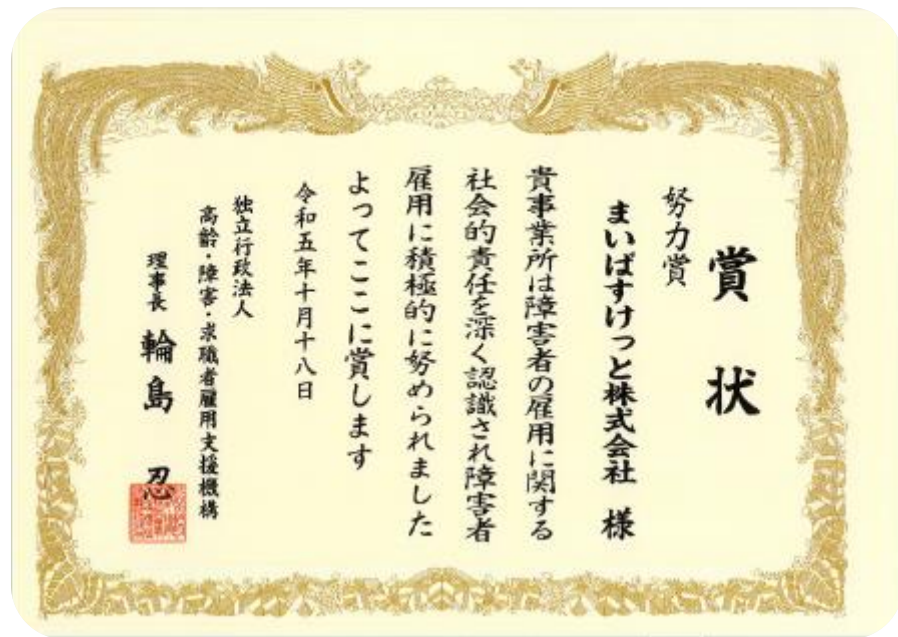 賞状
努力賞
まいばすけっと株式会社 様
貴事業所は障害者の雇用に関する
社会的責任を深く認識され障害者
雇用に積極的に努められました
よってここに賞します
令和五年十月十八日
独立行政法人
高齢・障害・求職者雇用支援機構
理事長 輪島 忍